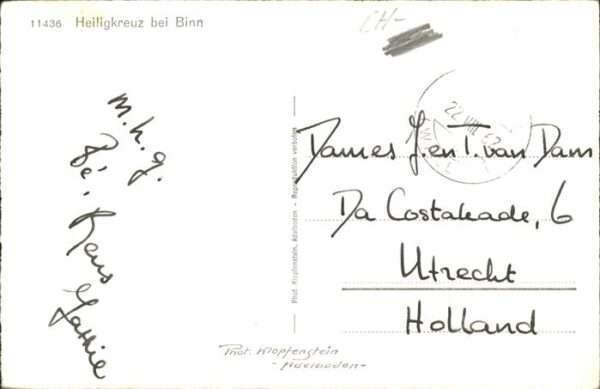 11436 Heiligkreuz bei Binn
CH-
22 VIII 62
m.h.g.
Bé. Kens
Dames J. en T. van Dam
Da Costakade, 6
Utrecht
Holland
Phot. Klopfenstein, Adelboden - Reproduktion verboten
Phot. Klopfenstein
- Adelboden -